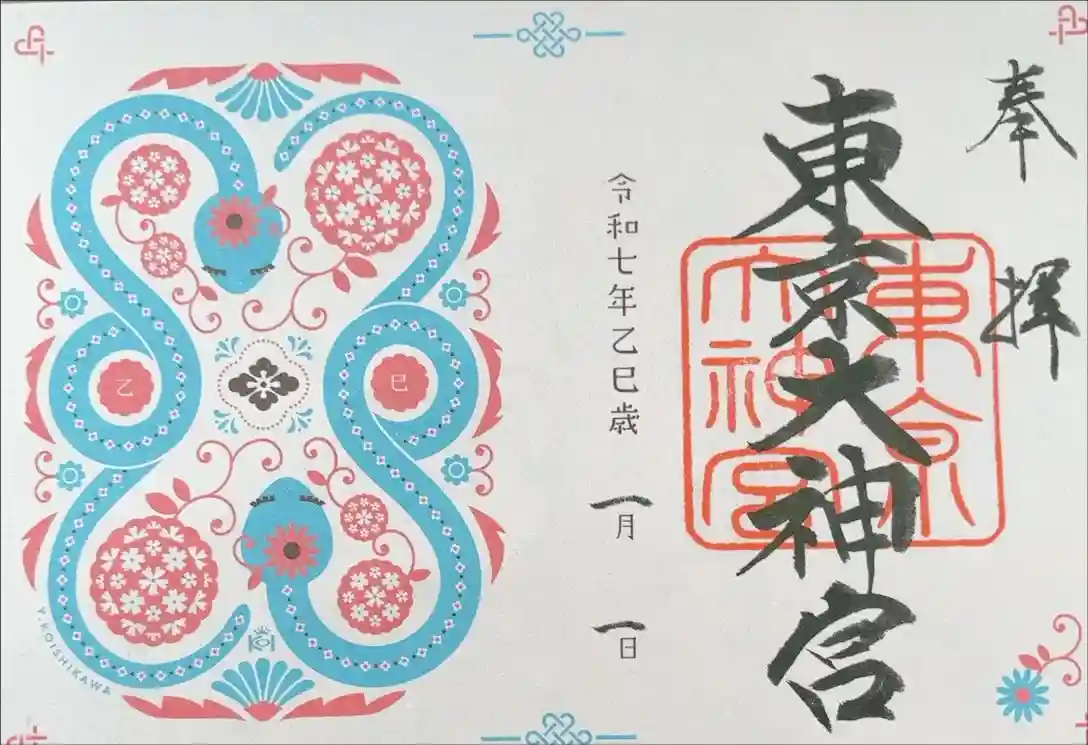 奉拝
東京大神宮
東京
大神宮
令和七年乙巳歳
一月
一日
乙
巳
Y.KOISHIKAWA